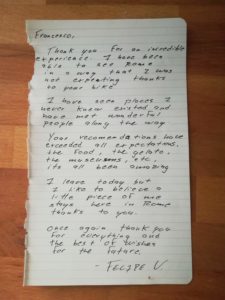 Francesco,
Thank you for an incredible
experience. I have been
able to see Rome
in a way that I was
not expecting thanks
to your bike
I have seen places I
never knew existed and
have met wonderful
people along the way
Your recomendations have
exceeded all expectations,
the food, the gelato,
the museums, etc,
its all been amazing
I leave today but
I like to believe a
little piece of me
stays here in Rome
thanks to you.
Once again thank you
for everything and
the best of wishes
for the future.
- FELIPE V.